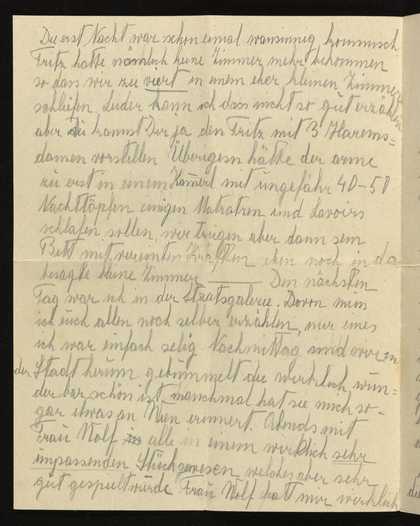 Die erst Nacht war schon einmal wansinnig kommisch
Fritz hatte nämlich keine Zimmer mehr bekommen
so dass wir zu viert in einem eher kleinen Zimmer
schliefen. Leider kann ich dass nicht so gut erzählen
aber Du kannst Dir ja den Fritz mit 3 Harems=
damen vorstellen. Überigens hätte der arme
zu erst in einem mit ungefähr 40-50
Nachttöpfen einigen Matratzen und Lavoirs
schlafen sollen, wir trugen aber dann sein
Bett mit vereinten Kräften eben noch in da
besagte kleine Zimmer. Den nächsten
Tag war ich in der Staatsgalerie. Davon muss
ich euch allen noch selber erzählen, nur eines
ich war einfach selig. Nachmittag sind wir in
der Stadt herum gebummelt die wirklich wun=
derbar schön ist, manchmal hat sie mich so=
gar etwas an Wien erinnert. Abends mit
Frau Wolf alle in einem wirklich sehr
unpassenden Stück gewesen, welches aber sehr
gut gespielt wurde. Frau Wolf hat mir wirklich